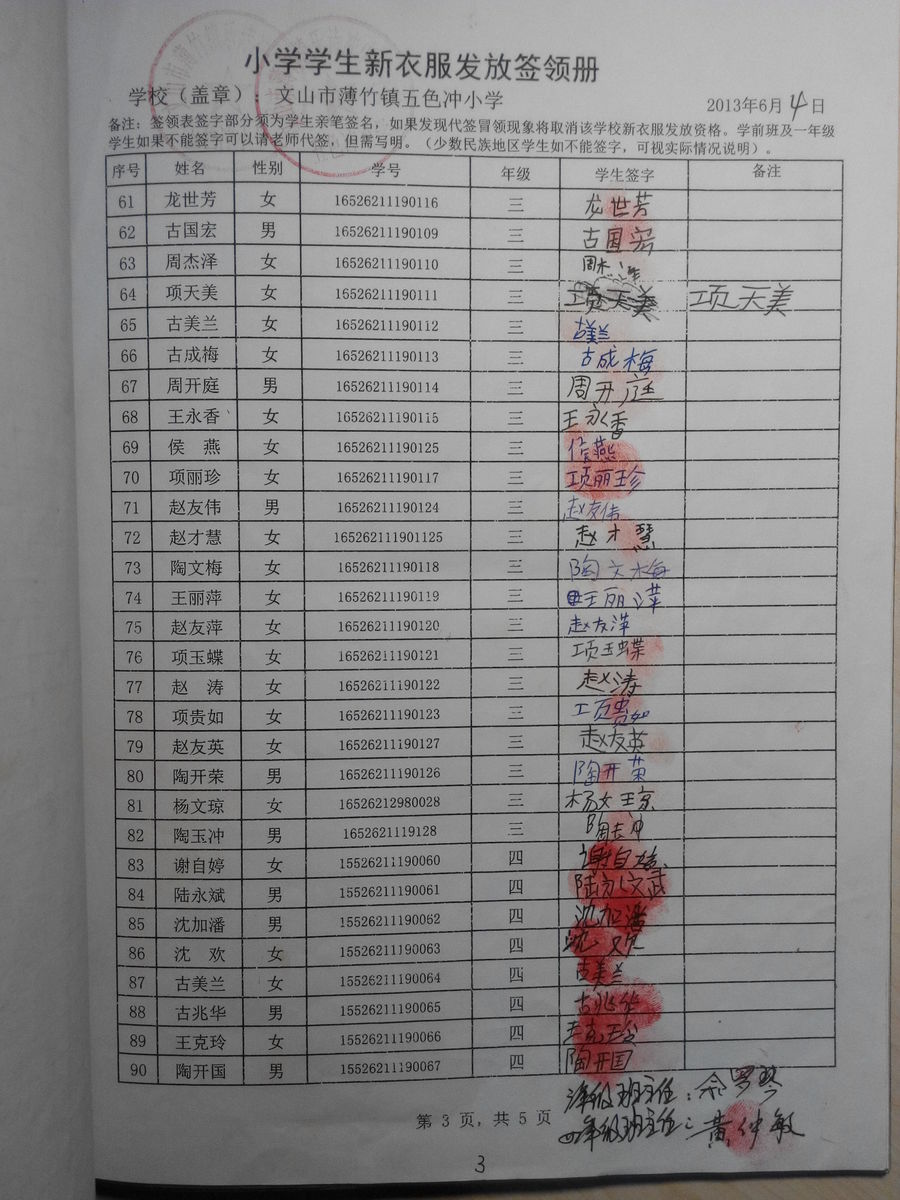 小学学生新衣服发放签领册
学校（盖章）：文山市薄竹镇五色冲小学 2013年6月4日
备注：签领表签字部分须为学生亲笔签名，如果发现代签冒领现象将取消该学校新衣服发放资格。学前班及一年级
学生如果不能签字可以请老师代签，但需写明。（少数民族地区学生如不能签字，可视实际情况说明）。
序号 姓名 性别 学号 年级 学生签字 备注
61 龙世芳 女 16526211190116 三 龙世芳
62 古国宏 男 16526211190109 三 古国宏
63 周杰泽 女 16526211190110 三 周杰泽
64 项天美 女 16526211190111 三 项天美 项天美
65 古美兰 女 16526211190112 三 古美兰
66 古成梅 女 16526211190113 三 古成梅
67 周开庭 男 16526211190114 三 周开庭
68 王永香 女 16526211190115 三 王永香
69 侯 燕 女 16526211190125 三 侯燕
70 项丽珍 女 16526211190117 三 项丽珍
71 赵友伟 男 16526211190124 三 赵友伟
72 赵才慧 女 165262111901125 三 赵才慧
73 陶文梅 女 16526211190118 三 陶文梅
74 王丽萍 女 16526211190119 三 王丽萍
75 赵友萍 女 16526211190120 三 赵友萍
76 项玉蝶 女 16526211190121 三 项玉蝶
77 赵 涛 女 16526211190122 三 赵涛
78 项贵如 女 16526211190123 三 项贵如
79 赵友英 女 16526211190127 三 赵友英
80 陶开荣 男 16526211190126 三 陶开荣
81 杨文琼 女 16526212980028 三 杨文琼
82 陶玉冲 男 1652621119128 三 陶玉冲
83 谢自婷 女 15526211190060 四 谢自婷
84 陆永斌 男 15526211190061 四 陆永斌
85 沈加潘 男 15526211190062 四 沈加潘
86 沈 欢 女 15526211190063 四 沈欢
87 古美兰 女 15526211190064 四 古美兰
88 古兆华 男 15526211190065 四 古兆华
89 王克玲 女 15526211190066 四 王克玲
90 陶开国 男 15526211190067 四 陶开国
三年级班主任：
第 3 页，共 5 页
四年级班主任：黄仲敏
3